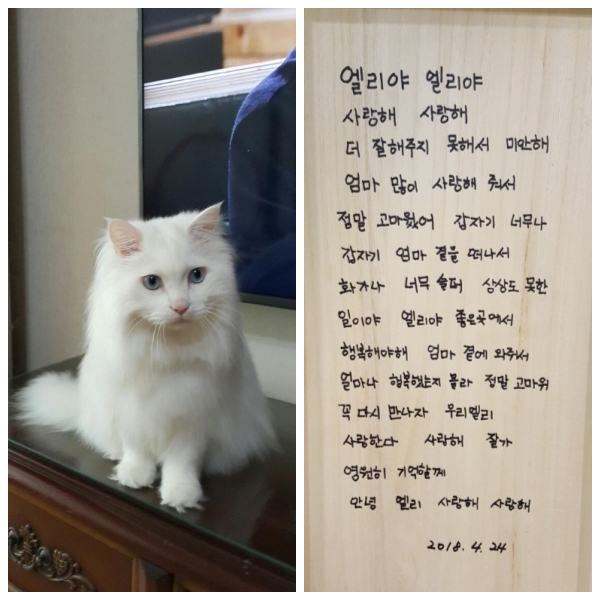 엘리야 엘리야
사랑해 사랑해
더 잘해주지 못해서 미안해
엄마 많이 사랑해 줘서
정말 고마웠어 갑자기 너무나
갑자기 엄마 곁을 떠나서
화가나 너무 슬퍼 상상도 못한
일이야 엘리야 좋은곳에서
행복해야해 엄마 곁에 와줘서
얼마나 행복했는지 몰라 정말 고마워
꼭 다시 만나자 우리엘리
사랑한다 사랑해 잘가
영원히 기억할께
안녕 엘리 사랑해 사랑해
2018. 4. 24